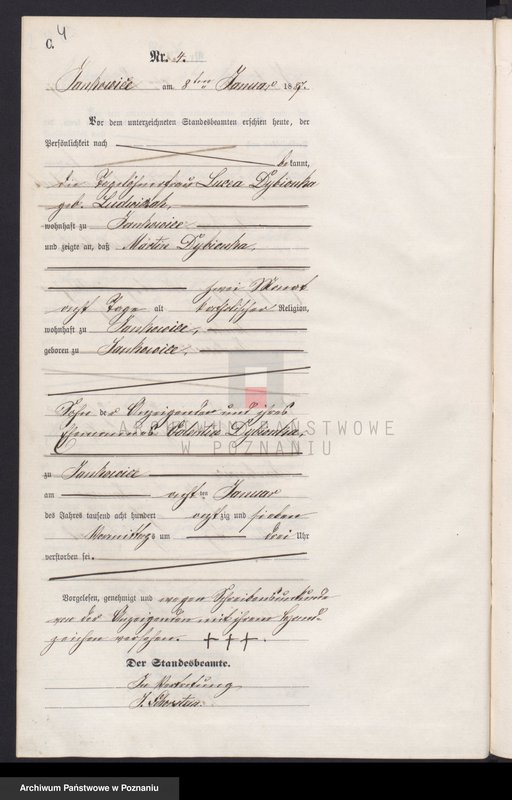 C. 4
Nr. 4.
Jankowice am 8ten Januar 1887.
Vor dem unterzeichneten Standesbeamten erschien heute, der
Persönlichkeit nach
bekannt,
die Tagelöhnerfrau Lucia Dybionka
geb. Ludwiczak,
wohnhaft zu Jankowice
und zeigte an, daß Martin Dybionka,
zwei Monat
acht Tage alt katholischer Religion,
wohnhaft zu Jankowice,
geboren zu Jankowice,
Sohn der Anzeigenden und ihres
Ehemannes Dybionka,
ARCHIWUM PAŃSTWOWE
W POZNANIU
zu Jankowice
am acht ten Januar
des Jahres tausend acht hundert achtzig und sieben
Vormittags um drei Uhr
verstorben sei.
Vorgelesen, genehmigt und wegen Schreibensunkunde
von der Anzeigenden mit ihrem Hand-
zeichen versehen. +++.
Der Standesbeamte.
In Vertretung
Archiwum Państwowe w Poznaniu